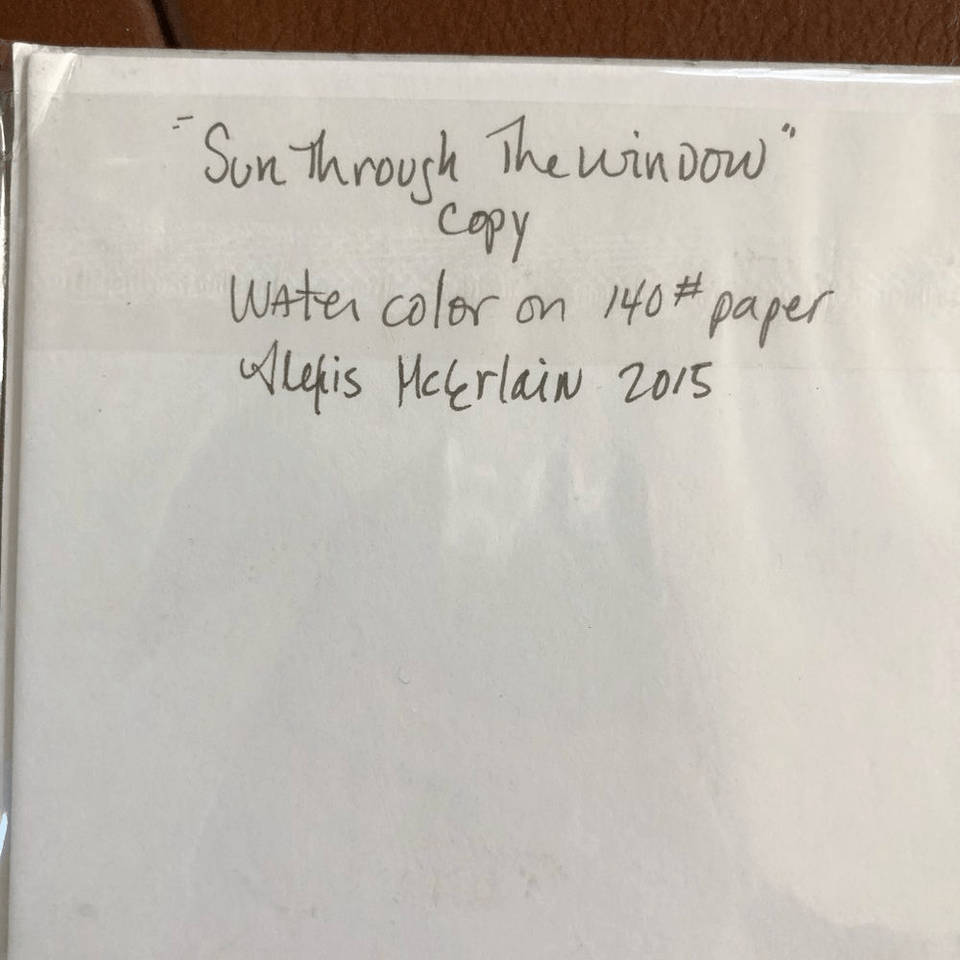 "Sun Through The Window"
Copy
Water color on 140# paper
Alexis McErlain 2015